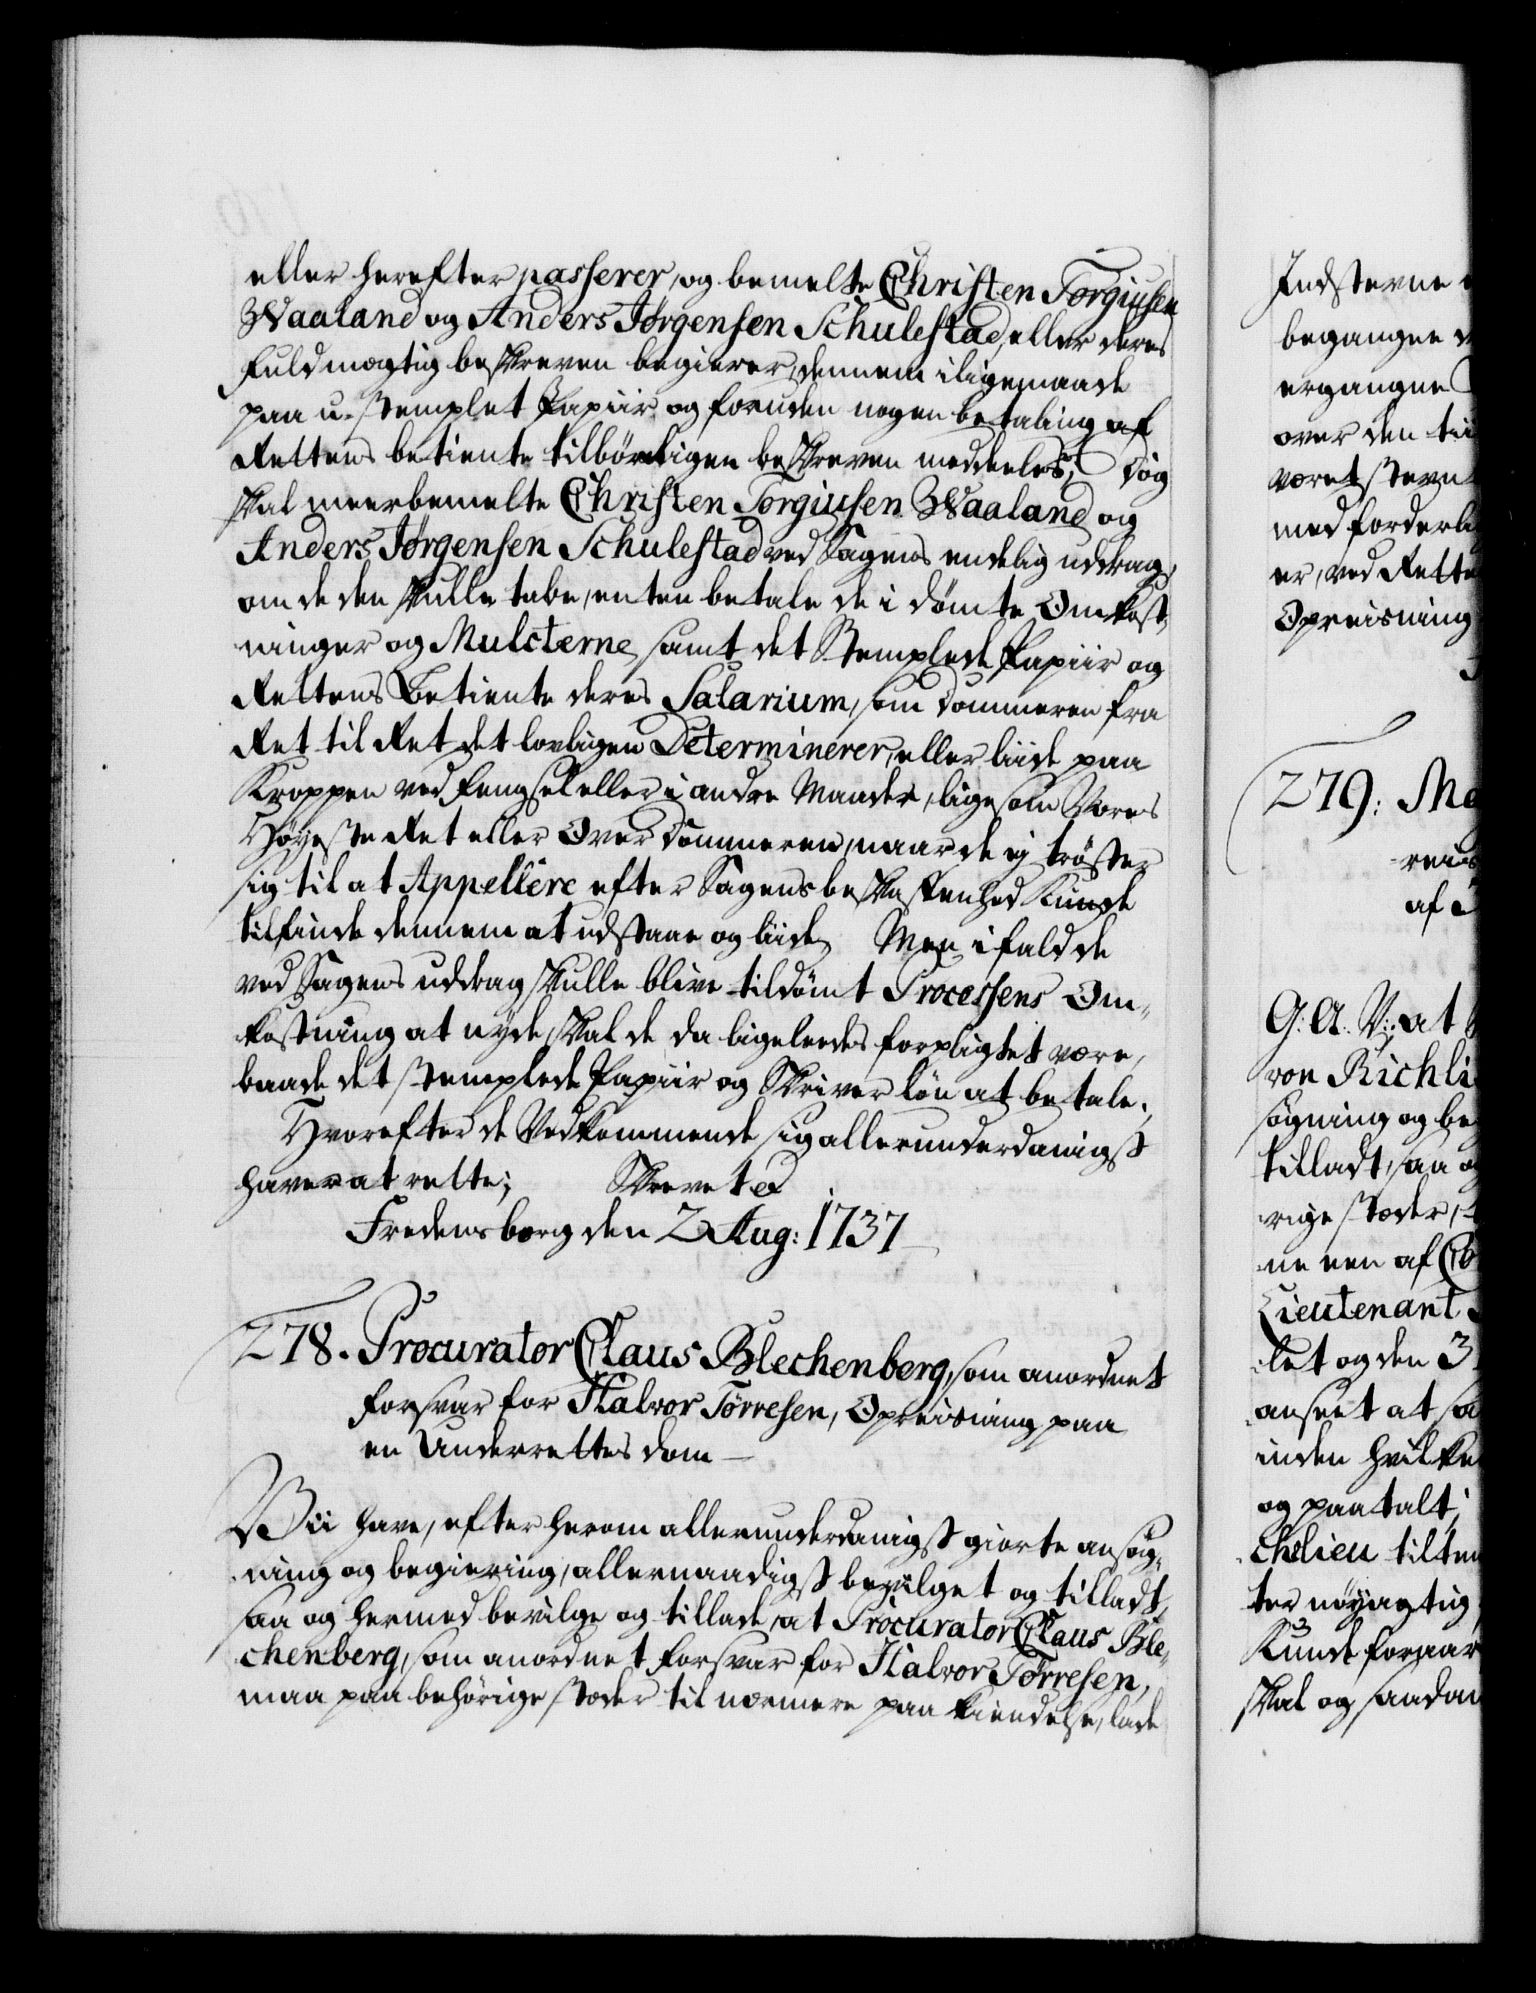 eller herefter passerer, og bemelte Christen Torgiusen
Waaland og Anders Jørgensen Schulestad, eller deres
Fuldmægtig beskreven begierer, dennem iligemaade
paa u-stemplet Papiir og foruden nogen betaling af
Rettens betiente tilbörligen beskreven meddeeles, Dog
skal meerbemelte Christen Torgiusen Waaland og
Anders Jørgensen Schulestad ved Sagens endelig uddrag,
om de den skulle tabe, enten betale de i dömte Omkost-
ninger og Mulcterne, samt det Stemplede Papiir og
Rettens Betiente deres Salarium, som Dommeren fra
Ret til Ret det lovligen Determinerer, eller liide paa
Kroppen ved Fengsel eller i andre Maader, ligesom Vores
Höyeste Ret eller Over Dommeren, naar de ej tröster
sig til at Appellere efter Sagens beskaffenhed kunde
tilfinde dennem at udstaae og liide, Men ifald de
ved Sagens uddrag skulle blive tildömt Processens Om-
kostning at nyde, skal de da ligeleedes forpligtet være,
baade det stemplede Papiir og Skriver lön at betale.
Hvorefter de Vedkommende sig allerunderdanigst
haver at rette; Skrevet &
Fredensborg den 2 Aug: 1737
278. Procurator Claus Blechenberg, som anordnet
forsvar for Halvor Törresen, Opreisning paa
en Underrettes dom
Wii have, efter herom allerunderdanigst giorte ansög-
ning og begiering, allernaadigst bevilget og tilladt,
saa og hermed bevilge og tillade, at Procurator Claus Ble-
chenberg, som anordnet forsvar for Halvor Törresen,
maa paa behörige stæder til nærmere paakiendelse, lade
Indstevne
begangne
ergangne
over den tii
været stevn
med forderli
er, ved Rette
Opreisning
279. Ma
reis
af
G: A: V: at
von Richli
sögning og be
tilladt, saa og
rige stæder,
ne een af
Lieutenant
let og den 3
anseet at sa
inden hvilke
og paatalt,
chelieu tilten
ter nöyagtig
kunde foraar
skal og saadan